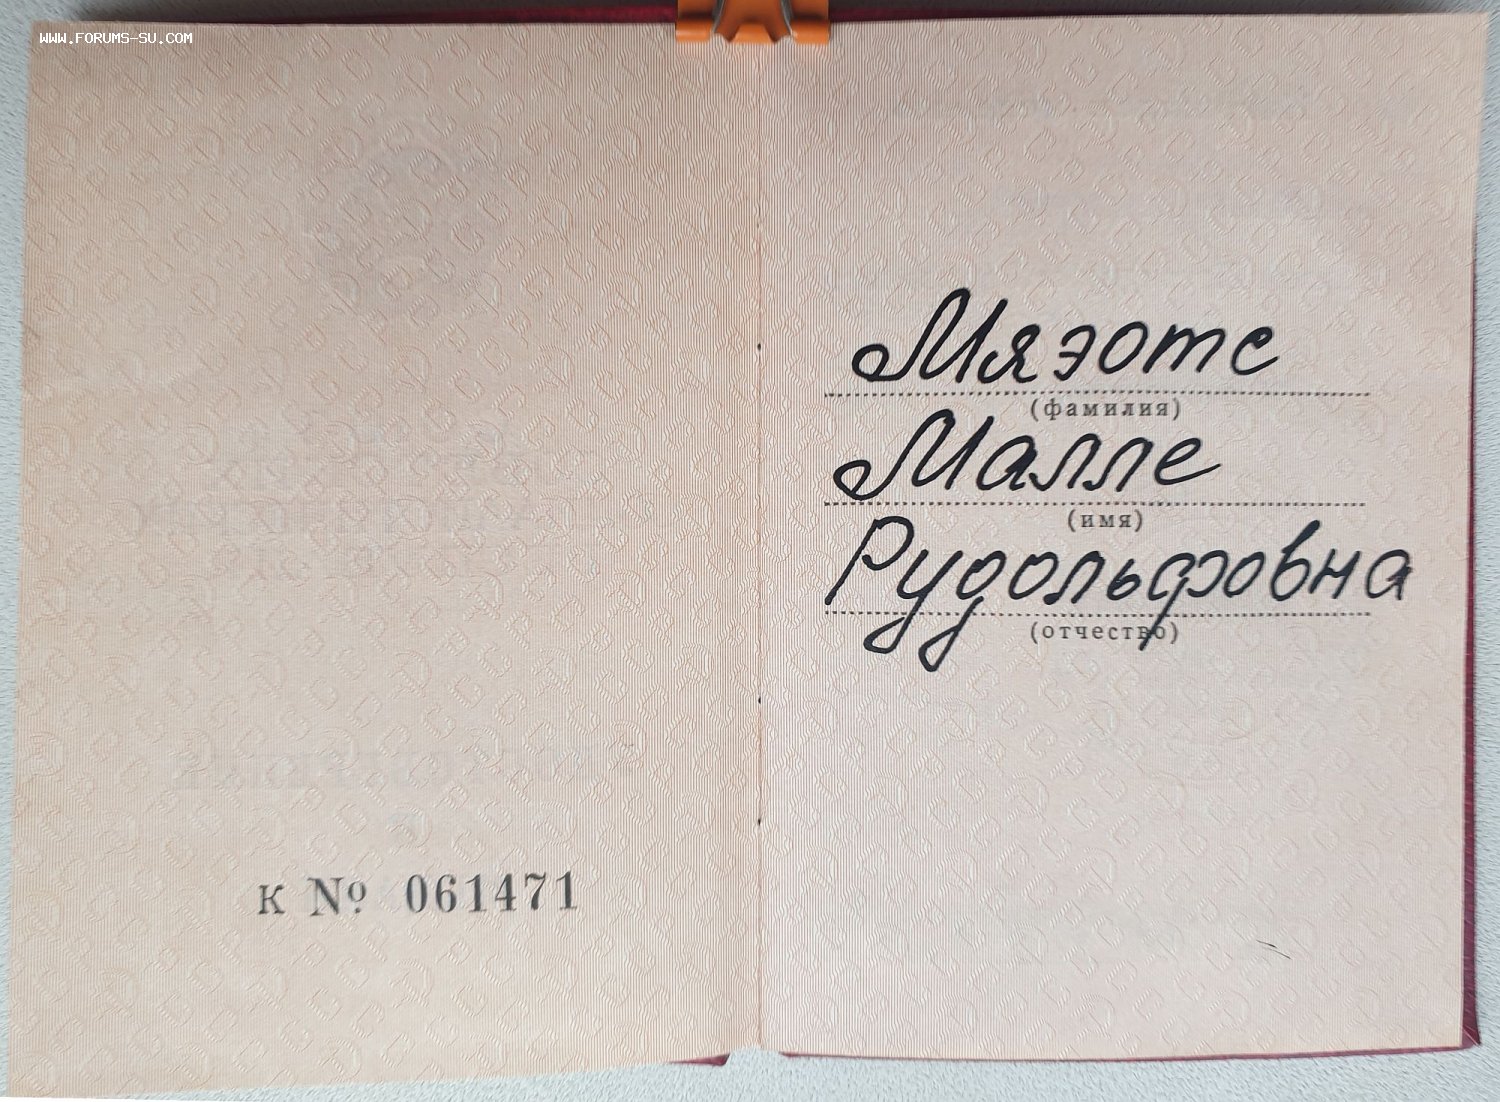 www.forums-su.com
К № 061471
Мяэотс
(фамилия)
Малле
(имя)
Рудольфовна
(отчество)